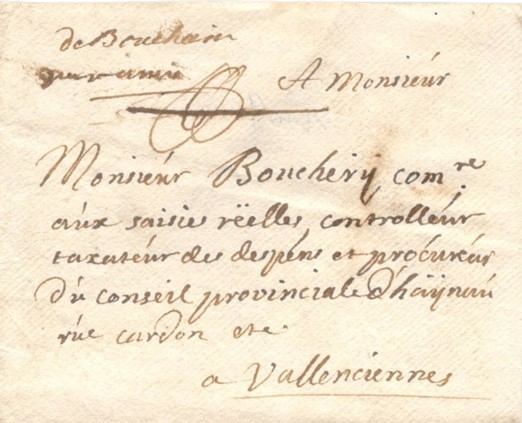 de Bouchain
par amis
A Monsieur
Monsieur Bouchery, com.re
aux saisie rëelles controlleur
taxateur des despéns et procureur
du Conseil provinciale d'häynau
rue cardon etc.
a Vallenciennes